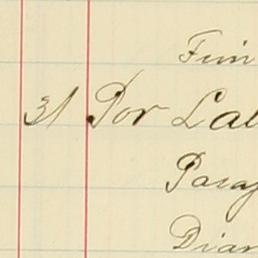 Fin
31 Por Lal
Parag
Dian